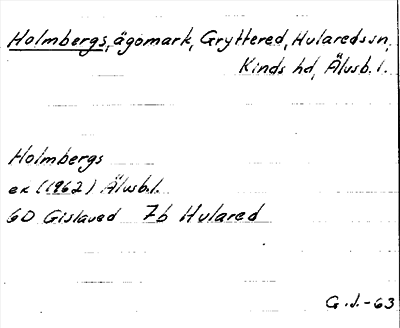 Holmbergs, ägomark, Gryttered, Hulareds sn,
Kinds hd, Älvsb. l.
Holmbergs
ek (1962) Älvsb.l.
6D Gislaved 7b Hulared
G.J.-63